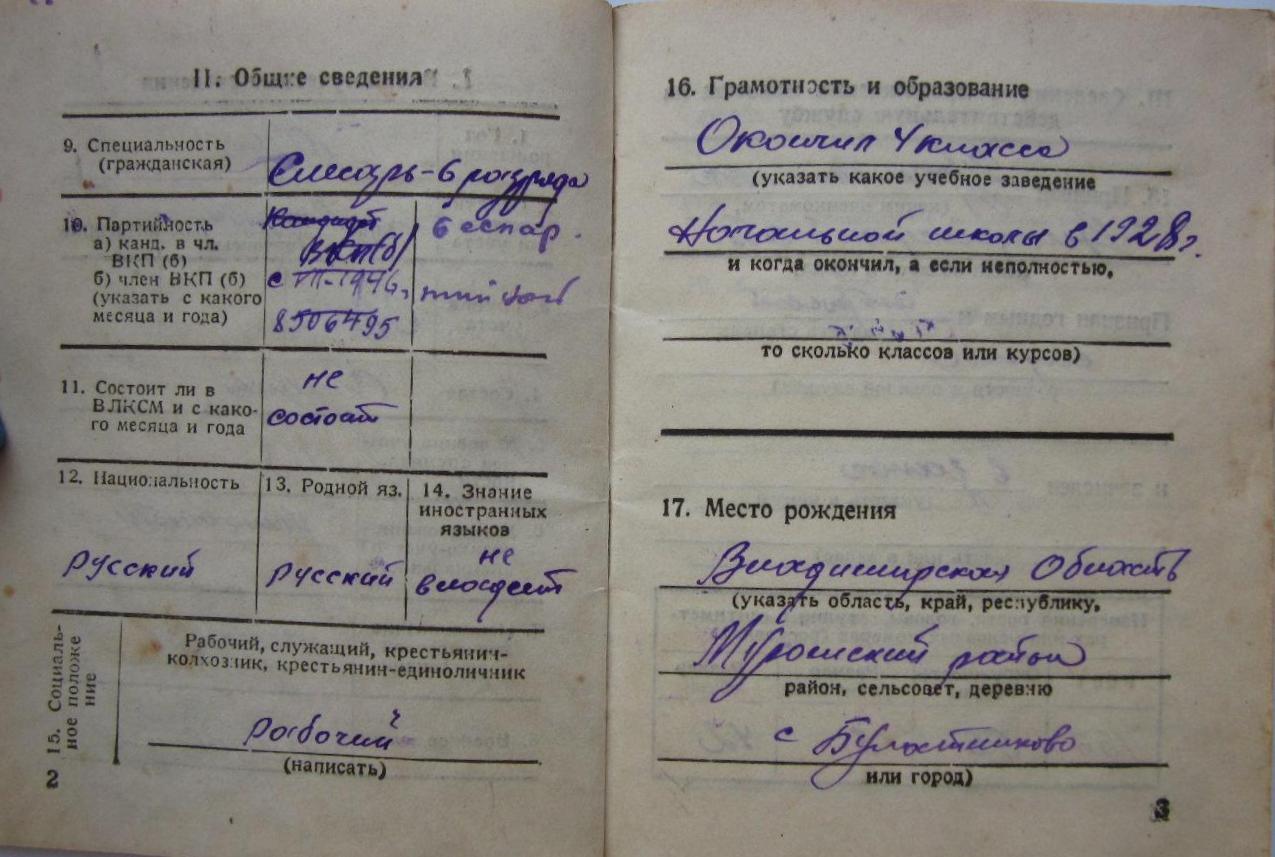 II. Общие сведения
9. Специальность
(гражданская)
Слесарь-6 разряда
10. Партийность
а) канд. в чл.
ВКП (б)
б) член ВКП (б)
(указать с какого
месяца и года)
Кандидат
ВКП(б)
с VII-1946г.
8506495
беспар.
тийный
11. Состоит ли в
ВЛКСМ и с како-
го месяца и года
не
состоит
12. Национальность
Русский
13. Родной яз.
русский
14. Знание
иностранных
языков
не
владеет
15. Социаль-
ное положе
ние
Рабочий, служащий, крестьянич-
колхозник, крестьянин-единоличник
рабочий
(написать)
2
16. Грамотность и образование
Окончил 4 класса
(указать какое учебное заведение
Начальной школы в 1928г.
и когда окончил, а если неполностью,
то сколько классов или курсов)
17. Место рождения
Владимирская Область
(указать область, край, республику,
Муромский район
район, сельсовет, деревню
с Булатниково
или город)
3